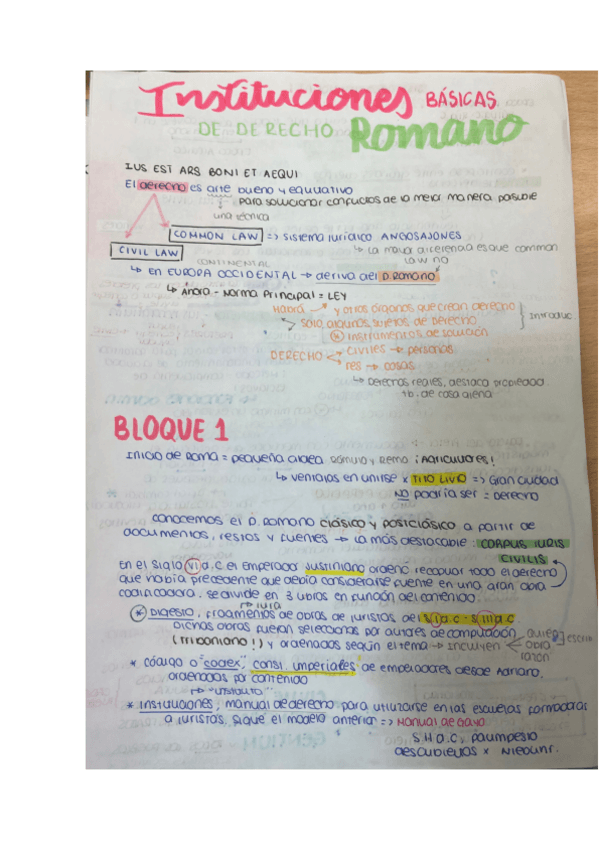 Instituciones BÁSICAS
DE DERECHO Romano
IUS EST ARS BONI ET AEQUI
El derecho es arte bueno y equitativo
para solucionar conflictos de la mejor manera posible
una técnica
COMMON LAW => sistema jurídico ANGLOSAJONES
CIVIL LAW
CONTINENTAL
↳ La mayor diferencia es que common law no
↳ en EUROPA OCCIDENTAL → deriva del D. Romano
↳ Ahora - Norma Principal = LEY
Habrá → y otros órganos que crean derecho
solo algunos sujetos de derecho
Introduc.
* instrumentos de solución
DERECHO
civiles → personas
res → cosas
↳ Derechos reales, destaca propiedad
tb. de cosa ajena
BLOQUE 1
Inicio de Roma = pequeña aldea Rómulo y Remo ¡Agricultores!
↳ ventajas en unirse x TITO LIVIO => Gran ciudad
NO podría ser = derecho
conocemos el D. Romano clásico y postclásico a partir de
documentos, restos y fuentes → la más destacable: CORPUS IURIS
CIVILIS
En el siglo VI a.C. el emperador Justiniano ordenó recopilar todo el derecho
que había precedente que debía considerarse fuente en una gran obra
codificadora, se divide en 3 libros en función del contenido.
iura
* DIGESTO, fragmentos de obras de juristas del S. I a.C - S. III a.C
Dichas obras fueron seleccionas por
(Triboniano!) y ordenados según el tema → incluyen
quien
obra
razón
escrib
* código o "codex", consi. imperiales de emperadores desde Adriano,
ordenadas por contenido
* Instituciones, manual de derecho para utilizarse en las escuelas formadoras
a juristas. Sigue el modelo anterior => Manual de Gayo
S. II d.C, palimpesto